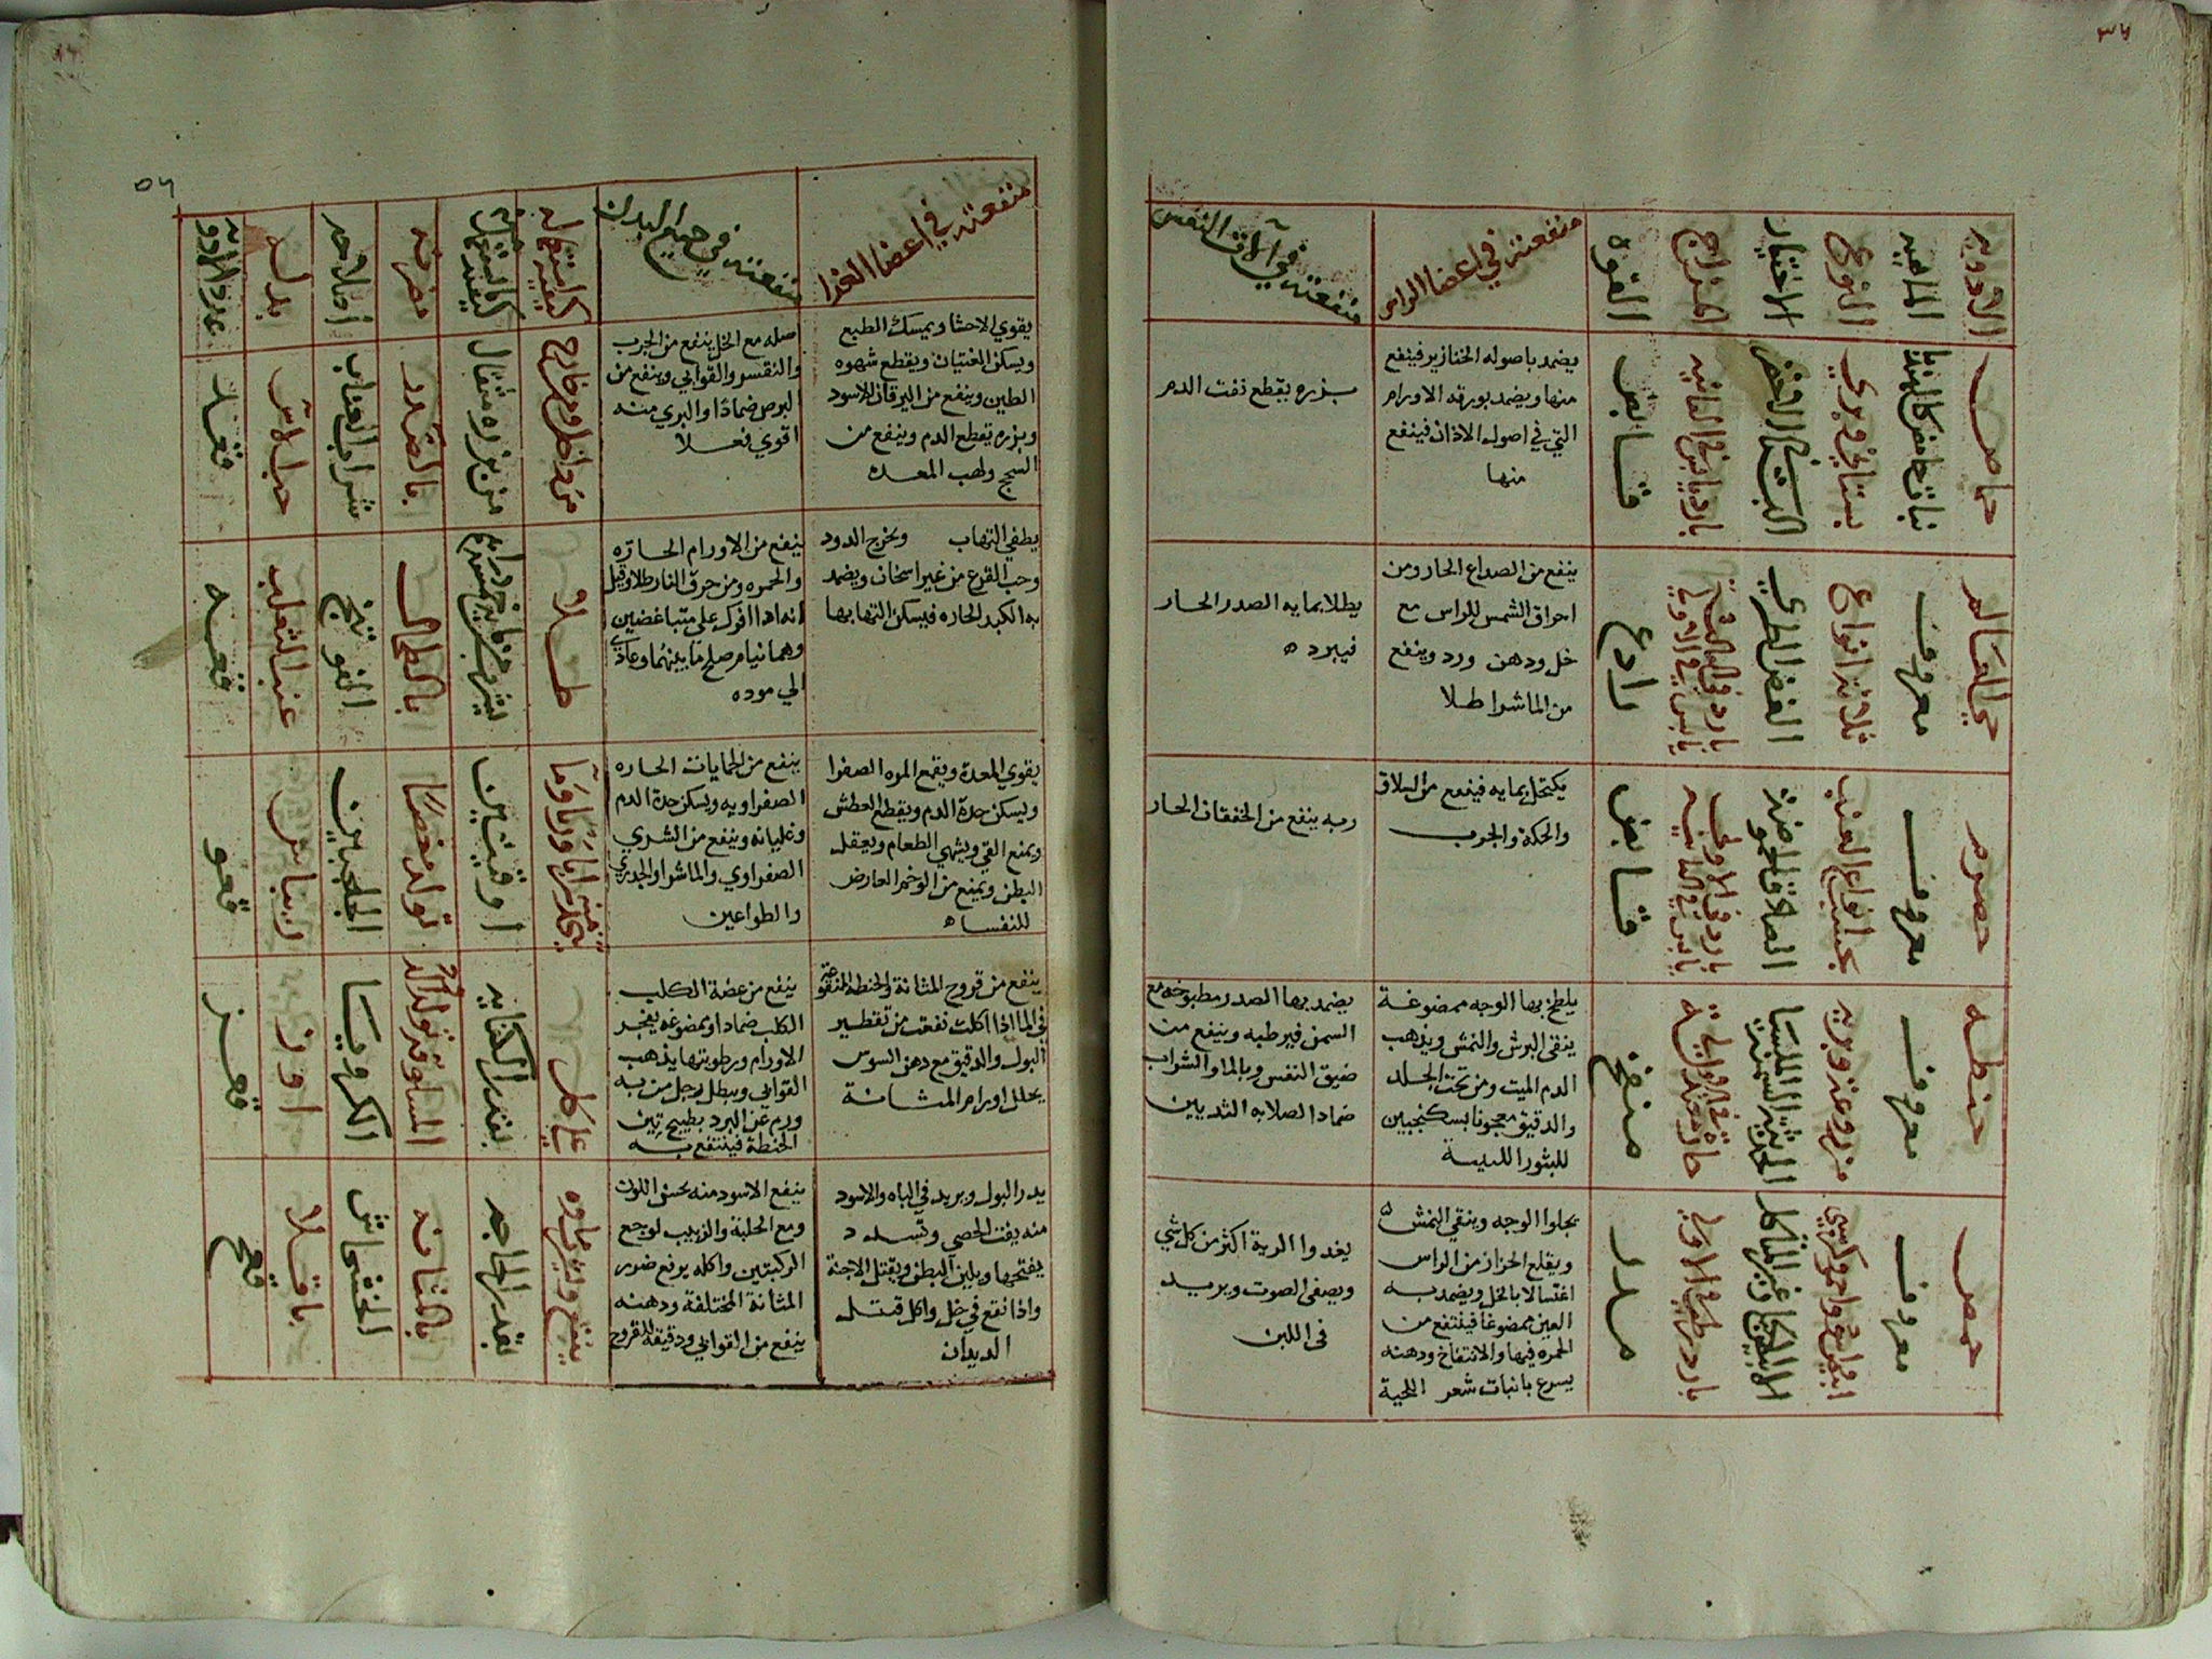 الادويه
الماهيه
النوع
الاختيار
المزاج
القوه
منفعته في اعضا الراس
منفعته في الات النفس
حماض
نبات حامض كالهندبا
بستاني وبري
البستاني الغض
بارد يابس في الثانيه
قابض
يضمد باصوله الخنازير فينفع
منها ويضمد بورقه الاورام
التي في اصول الاذان فينفع
منها
بزره يقطع نفث الدم
حي العالم
معروف
ثلاثة انواع
الغض الطري
بارد في الثالثة
يابس في الاولي
رادع
ينفع من الصداع الحار ومن
احراق الشمس للراس مع
خل ودهن ورد وينفع
من الماشرا طلا
يطلا بمايه الصدر الحار
فيبرد ه
حصرم
معروف
بحسب انواع العنب
الصادق الحموضة
بارد في الاولي
يابس في الثانيه
قابض
يكتحل بمايه فينفع من السلاق
والحكة والجرب
ربه ينفع من الخفقان الحار
حنطه
معروف
الملسا
منضج
يلطخ بها الوجه ممضوغة
ينقي البرش والنمش ويذهب
الدم الميت ومن تحت الجلد
والدقيق معجونا بسكنجبين
للبثور اللبنية
يضمد بها الصدر مطبوخه مع
السمن فيرطبه وينفع من
ضيق النفس وبالما والشراب
ضمادا لصلابه الثديين
حمص
معروف
ابيض واحمر وكرسني
الابيض الكبار غير المتاكل
بارد رطب في الاولي
مدر
يجلوا الوجه وينقي النمش
ويقلع الحزاز من الراس
اغتسالا بالخل ويضمد به
العين ممضوغا فينتفع من
الحمره فيها والانتفاخ ودهنه
يسرع بانبات شعر اللحية
يغدوا الرية اكثر من كل شي
ويصفي الصوت ويزيد
في اللبن
منفعته في اعضا الغذا
منفعته في جميع البدن
كيفية استعماله
كمية ما يستعمل منه
مضرته
اصلاحه
بدله
عدد الادويه
يقوي الاحشا ويمسك الطبع
ويسكن الغثيان ويقطع شهوه
الطين وينفع من اليرقان الاسود
وبزره يقطع الدم وينفع من
السحج ولهب المعده
اصله مع الخل ينفع من الجرب
والتقشر والقوابي وينفع من
البرص ضمادا والبري منه
اقوي فعلا
من داخل ومن خارج
من بزره مثقال
بالصدر
شراب العناب
حب الاس
يطفي التهاب ويخرج الدود
وحب القرع من غير اسخان ويضمد
به الكبد الحاره فيسكن التهابها
ينفع من الاورام الحاره
والحمره ومن حرق النار طلا وقيل
انه اذا افرك علي متباغضين
وهما نيام صلح ما بينهما وعاد
الي موده
طلا
بالطحال
الفوتنج
عنب الثعلب
يقوي المعدة ويقمع المره الصفرا
ويسكن حدة الدم ويقطع العطش
ويمنع القي ويشهي الطعام ويعقل
البطن ويمنع من الوخم العارض
للنفسا ه
ينفع من الحمايات الحاره
الصفراويه ويسكن حدة الدم
وغليانه وينفع من الشري
الصفراوي والماشرا والجدري
والطواعين
اوقيتين
تولد مغصا
الجلجبين
ريباس
ينفع من قروح المثانة والحنطه المنقوعة
في الما اذا اكلت نفعت من تقطير
البول والدقيق مع دهن السوس
يحلل اورام المثانة
ينفع من عضة الكلب
الكلب ضمادا وممضوغه يفجر
الاورام ورطوبتها يذهب
القوابي ويبطل رجل من به
ورم عن البرد بطبيخ تبن
الحنطة فينتفع به
علي كل
بقدر الكفايه
الكرويا
ارز
يدر البول ويزيد في الباه والاسود
منه يفتت الحصي وتسدد
يفتحها ويلين البطن ويقتل الاجنة
واذا نقع في خل واكل قتل
الديدان
ينفع الاسود منه يحسن اللون
ومع الحلبة والزبيب لوجع
الركبتين واكله يرفع ضرر
المثانة المختلفة ودهنه
ينفع من القوابي ودقيقه للقروح
ينقع ويشرب ماوه
بقدر الحاجه
بالمثانه
الخشخاش
باقلا